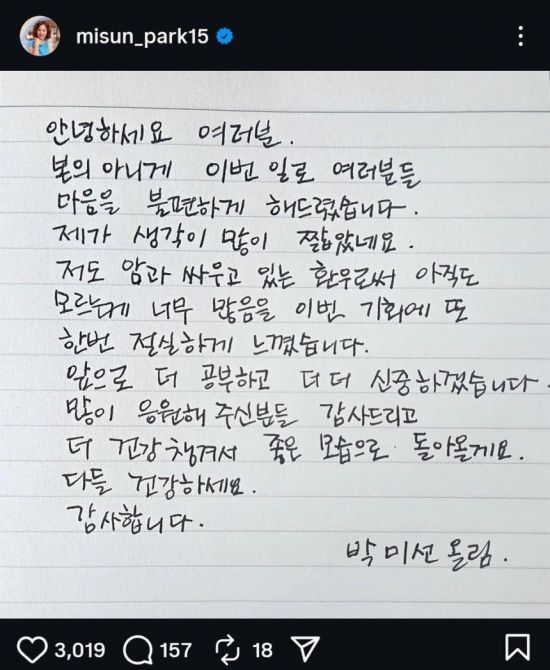 misun_park15
안녕하세요 여러분.
본의 아니게 이번 일로 여러분들
마음을 불편하게 해드렸습니다.
제가 생각이 많이 짧았네요.
저도 암과 싸우고 있는 환우로써 아직도
모르는게 너무 많음을 이번 기회에 또
한번 절실하게 느꼈습니다.
앞으로 더 공부하고 더 더 신중하겠습니다.
많이 응원해 주신분들 감사드리고
더 건강 챙겨서 좋은 모습으로 돌아올게요.
다들 건강하세요.
감사합니다.
박미선 올림.
3,019 157 18